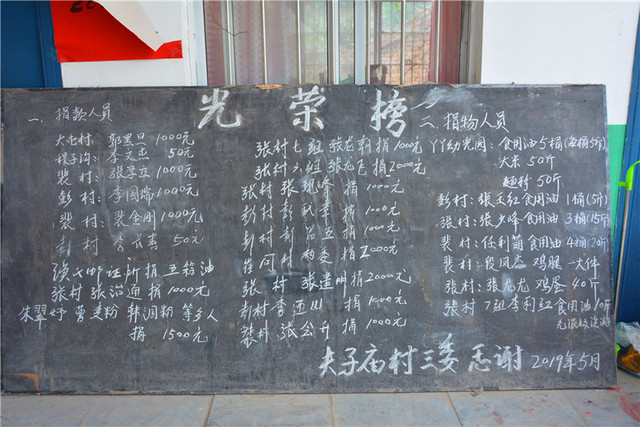 光荣榜
一、捐款人员
大屯村：郭黑旦 1000元
槐子沟：李文杰 50元
裴村：张学立 1000元
彭村：李国瑞 1000元
裴村：裴金刚 1000元
彭村：李长春 50元
镇长听证所捐五箱油
张村张治通捐1000元
朱翠妤 曹麦粉 韩润粉 等多人
捐 1500元
张村七组张龙朝捐1000元
张村六组张龙飞捐2000元
张村张 峰捐1000元
彭村彭 捐1000元
彭村彭 捐1000元
崔 村 捐2000元
张村 张造明捐2000元
彭村李西川捐1000元
裴村张公升捐1000元
二、捐物人员
丫丫幼儿园：食用油5桶(每桶5斤)
大米 50斤
面粉 50斤
彭村：张玉红 食用油 1桶(5斤)
张村：张少峰 食用油 3桶(15斤)
裴村：任利菊 食用油 4桶(20斤)
裴村：段凤态 鸡腿 一大件
张村：张龙龙 鸡蛋 40斤
张村 7组李莉红 食用油 10斤
夫子庙村三委 忠谢 2019年5月